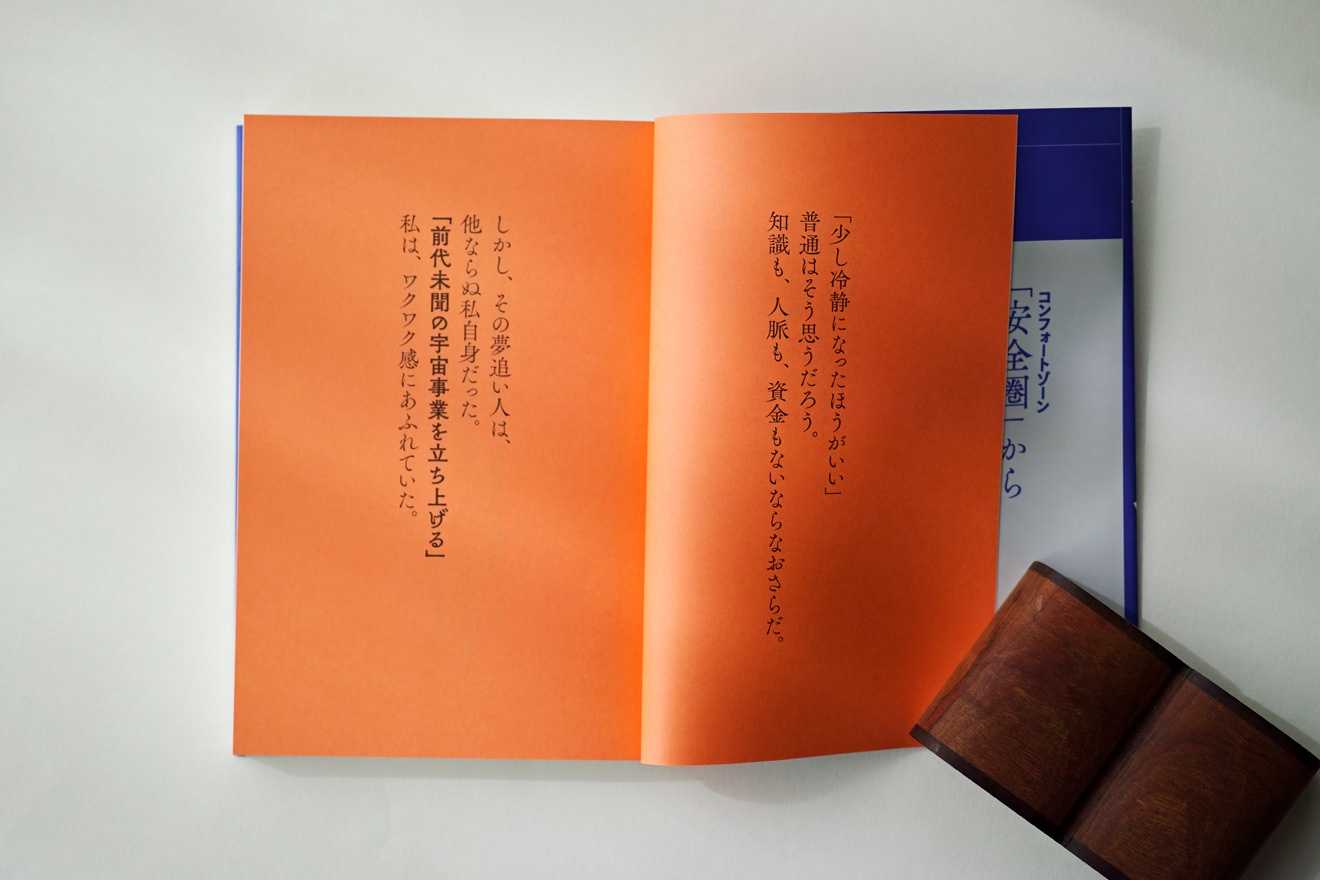 「少し冷静になったほうがいい」
普通はそう思うだろう。
知識も、人脈も、資金もないならなおさらだ。
しかし、その夢追い人は、
他ならぬ私自身だった。
「前代未聞の宇宙事業を立ち上げる」
私は、ワクワク感にあふれていた。
コンフォートゾーン
「安全圏」から